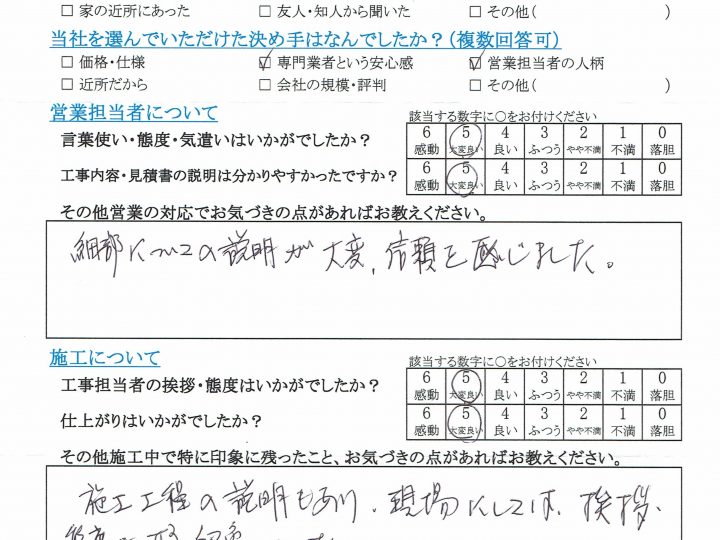 □ 家の近所にあった □ 友人・知人から聞いた □ その他( )
当社を選んでいただけた決め手はなんでしたか？(複数回答可)
□ 価格・仕様 ☑ 専門業者という安心感 ☑ 営業担当者の人柄
□ 近所だから □ 会社の規模・評判 □ その他( )
営業担当者について 該当する数字に○をお付けください
言葉使い・態度・気遣いはいかがでしたか？
6 5 4 3 2 1 0
感動 大変良い 良い ふつう やや不満 不満 落胆
工事内容・見積書の説明は分かりやすかったですか？
6 5 4 3 2 1 0
感動 大変良い 良い ふつう やや不満 不満 落胆
その他営業の対応でお気づきの点があればお教えください。
細部についての説明が大変、信頼を感じました。
施工について 該当する数字に○をお付けください
工事担当者の挨拶・態度はいかがでしたか？
6 5 4 3 2 1 0
感動 大変良い 良い ふつう やや不満 不満 落胆
仕上がりはいかがでしたか？
6 5 4 3 2 1 0
感動 大変良い 良い ふつう やや不満 不満 落胆
その他施工中で特に印象に残ったこと、お気づきの点があればお教えください。
施工工程の説明もあり、現場にしては、挨拶、